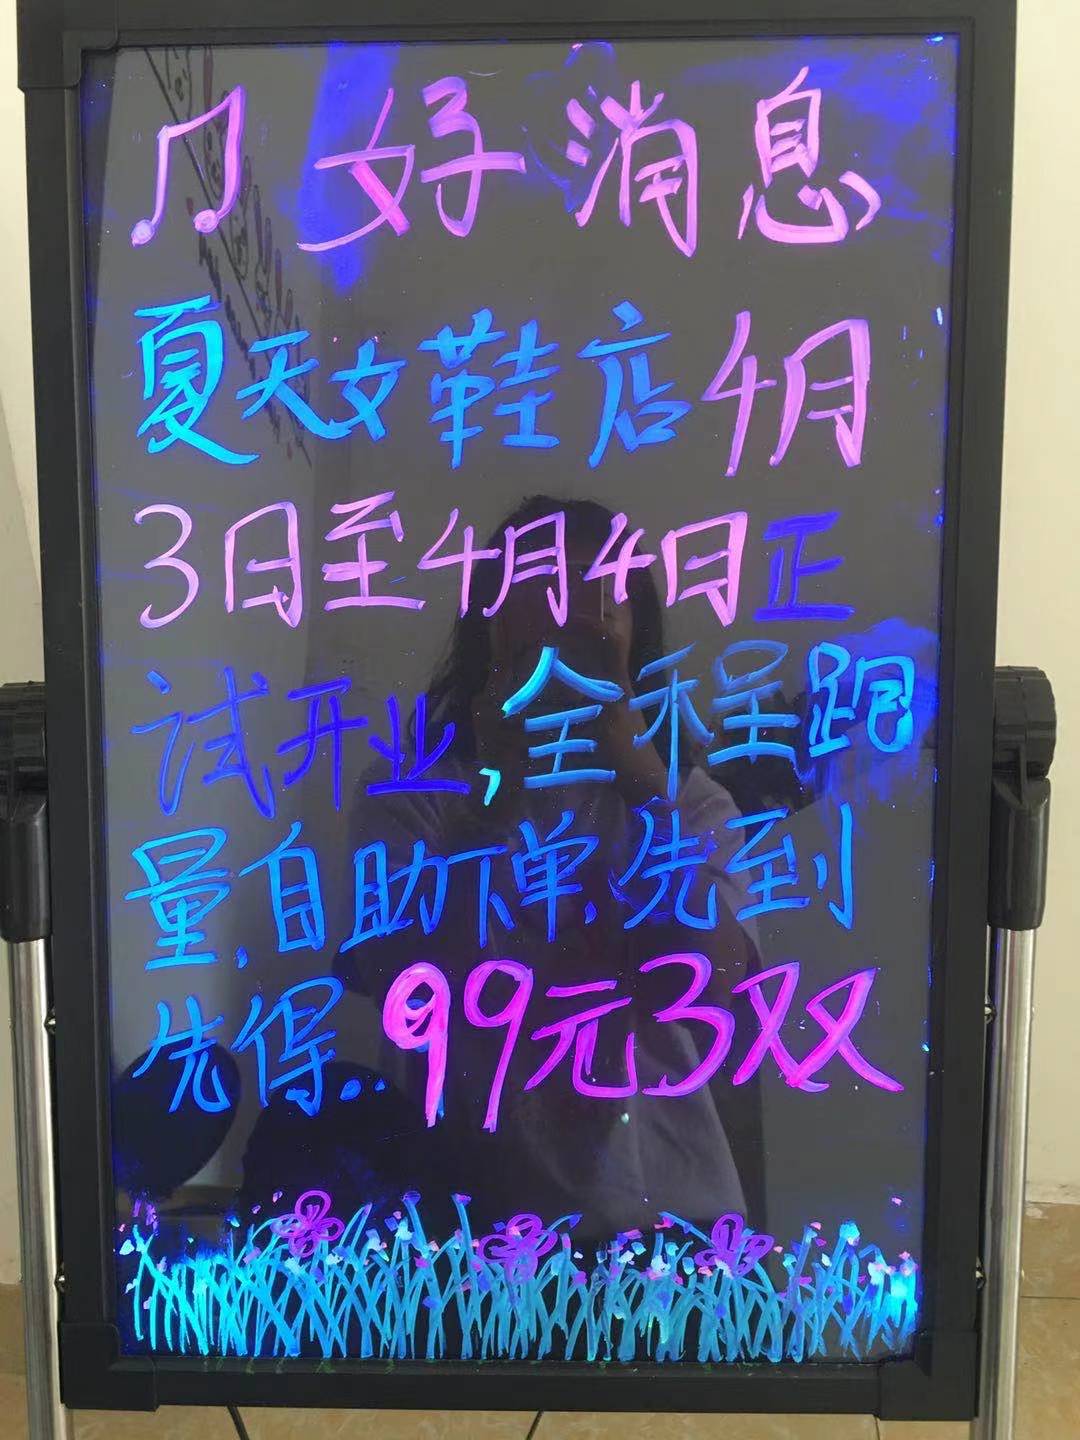 ♫好消息，
夏天女鞋店4月
3日至4月4日正
试开业，全程跑
量.自助下单.先到
先得..99元3双